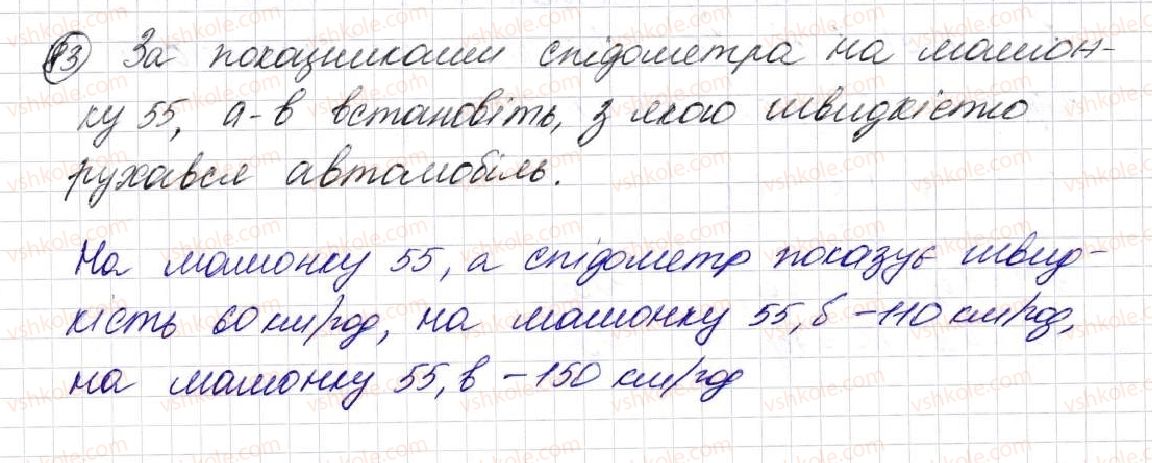 83 За показниками спідометра на малюн-
ку 55, а-в встановіть, з якою швидкістю
рухався автомобіль.
На малюнку 55, а спідометр показує швид-
кість 60 км/год, на малюнку 55, б – 110 км/год,
на малюнку 55, в – 150 км/год